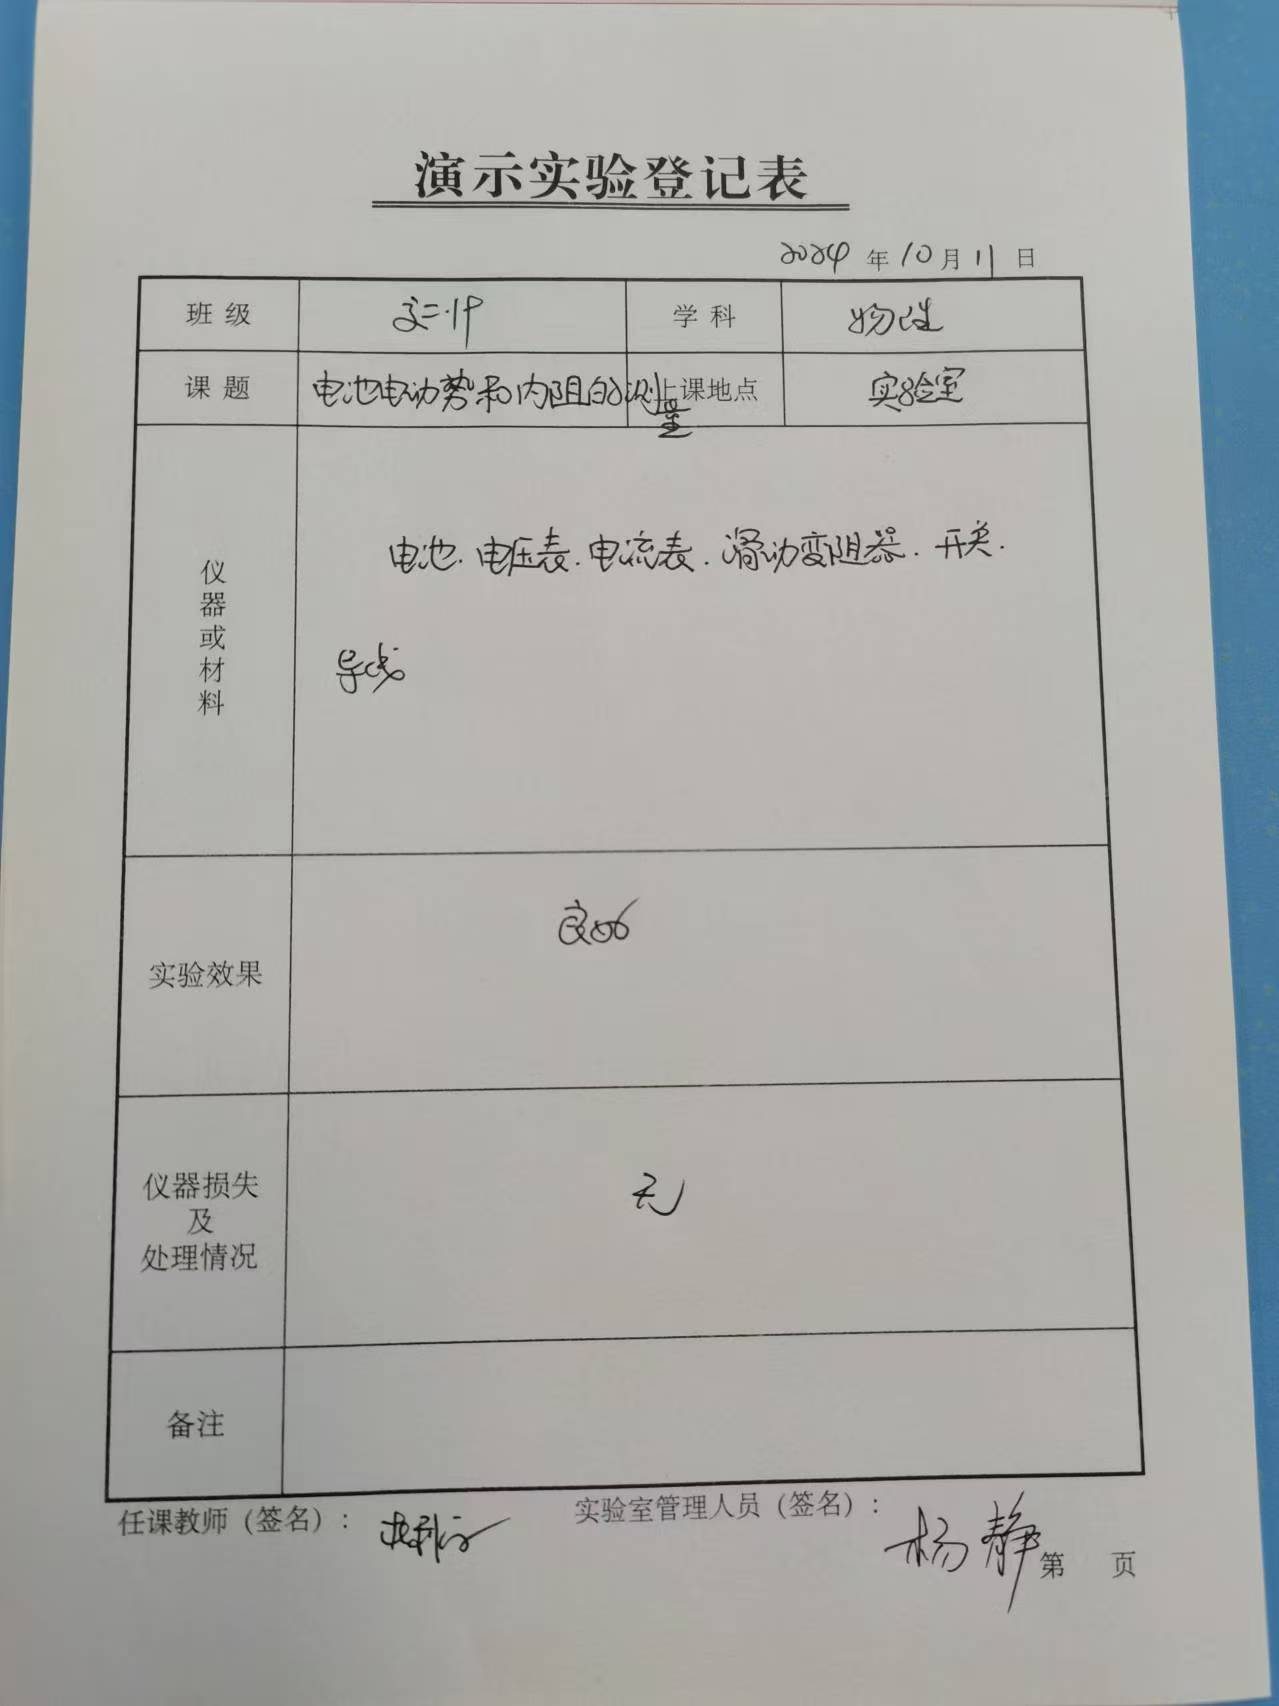 演示实验登记表
2024 年 10 月 11 日
班级 学科 物理
课题 电池电动势和内阻的测量 上课地点 实验室
仪器或材料
电池. 电压表. 电流表. 滑动变阻器. 开关.
导线
实验效果 良好
仪器损失
及
处理情况
无
备注
任课教师（签名）：
实验室管理人员（签名）：
杨静
第 页